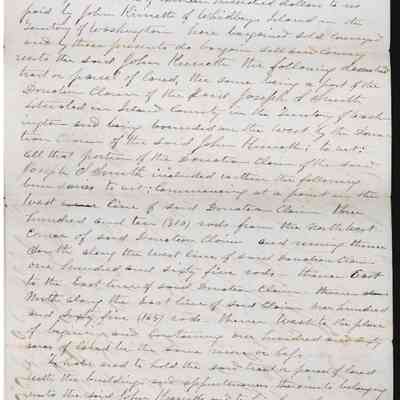 hundred dollars to us
paid by John Kinneth of Whidbys Island in the
Territory of Washington have bargained sold conveyed
and by these presents do bargain sell and convey
unto the said John Kinneth the following described
tract or parcel of land, the same being a part of the
Donation Claim of the said Joseph S Smith
situated in Island County in the Territory of Wash
ington and being bounded on the West by the Dona
tion Claim of the said John Kinneth; to wit:
all that portion of the Donation Claim of the said
Joseph S Smith included within the following
boundaries to wit; Commencing at a point on the
West line of said Donation Claim three
hundred and ten (310) rods from the North West
Corner of said Donation Claim and running thence
South along the West line of said Donation Claim
one hundred and sixty five rods - thence East
to the East line of said Donation Claim thence
North along the East line of said Claim one hundred
and sixty five (165) rods thence West to the place
of begining and containing one hundred and sixty
acres of land be the same more or less.
To have and to hold the said tract or parcel of land
with the buildings and appurtenances thereunto belonging
unto the said John Kinneth and to his